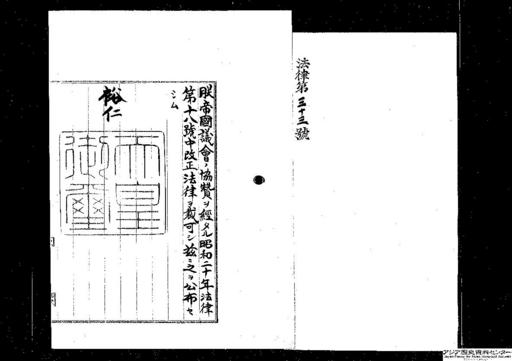 法律第三十三號
朕帝國議會ノ協賛ヲ經タル昭和二十年法律
第十八號中改正法律ヲ裁可シ茲ニ之ヲ公布セ
シム
裕仁
天皇
御璽
アジア歴史資料センター